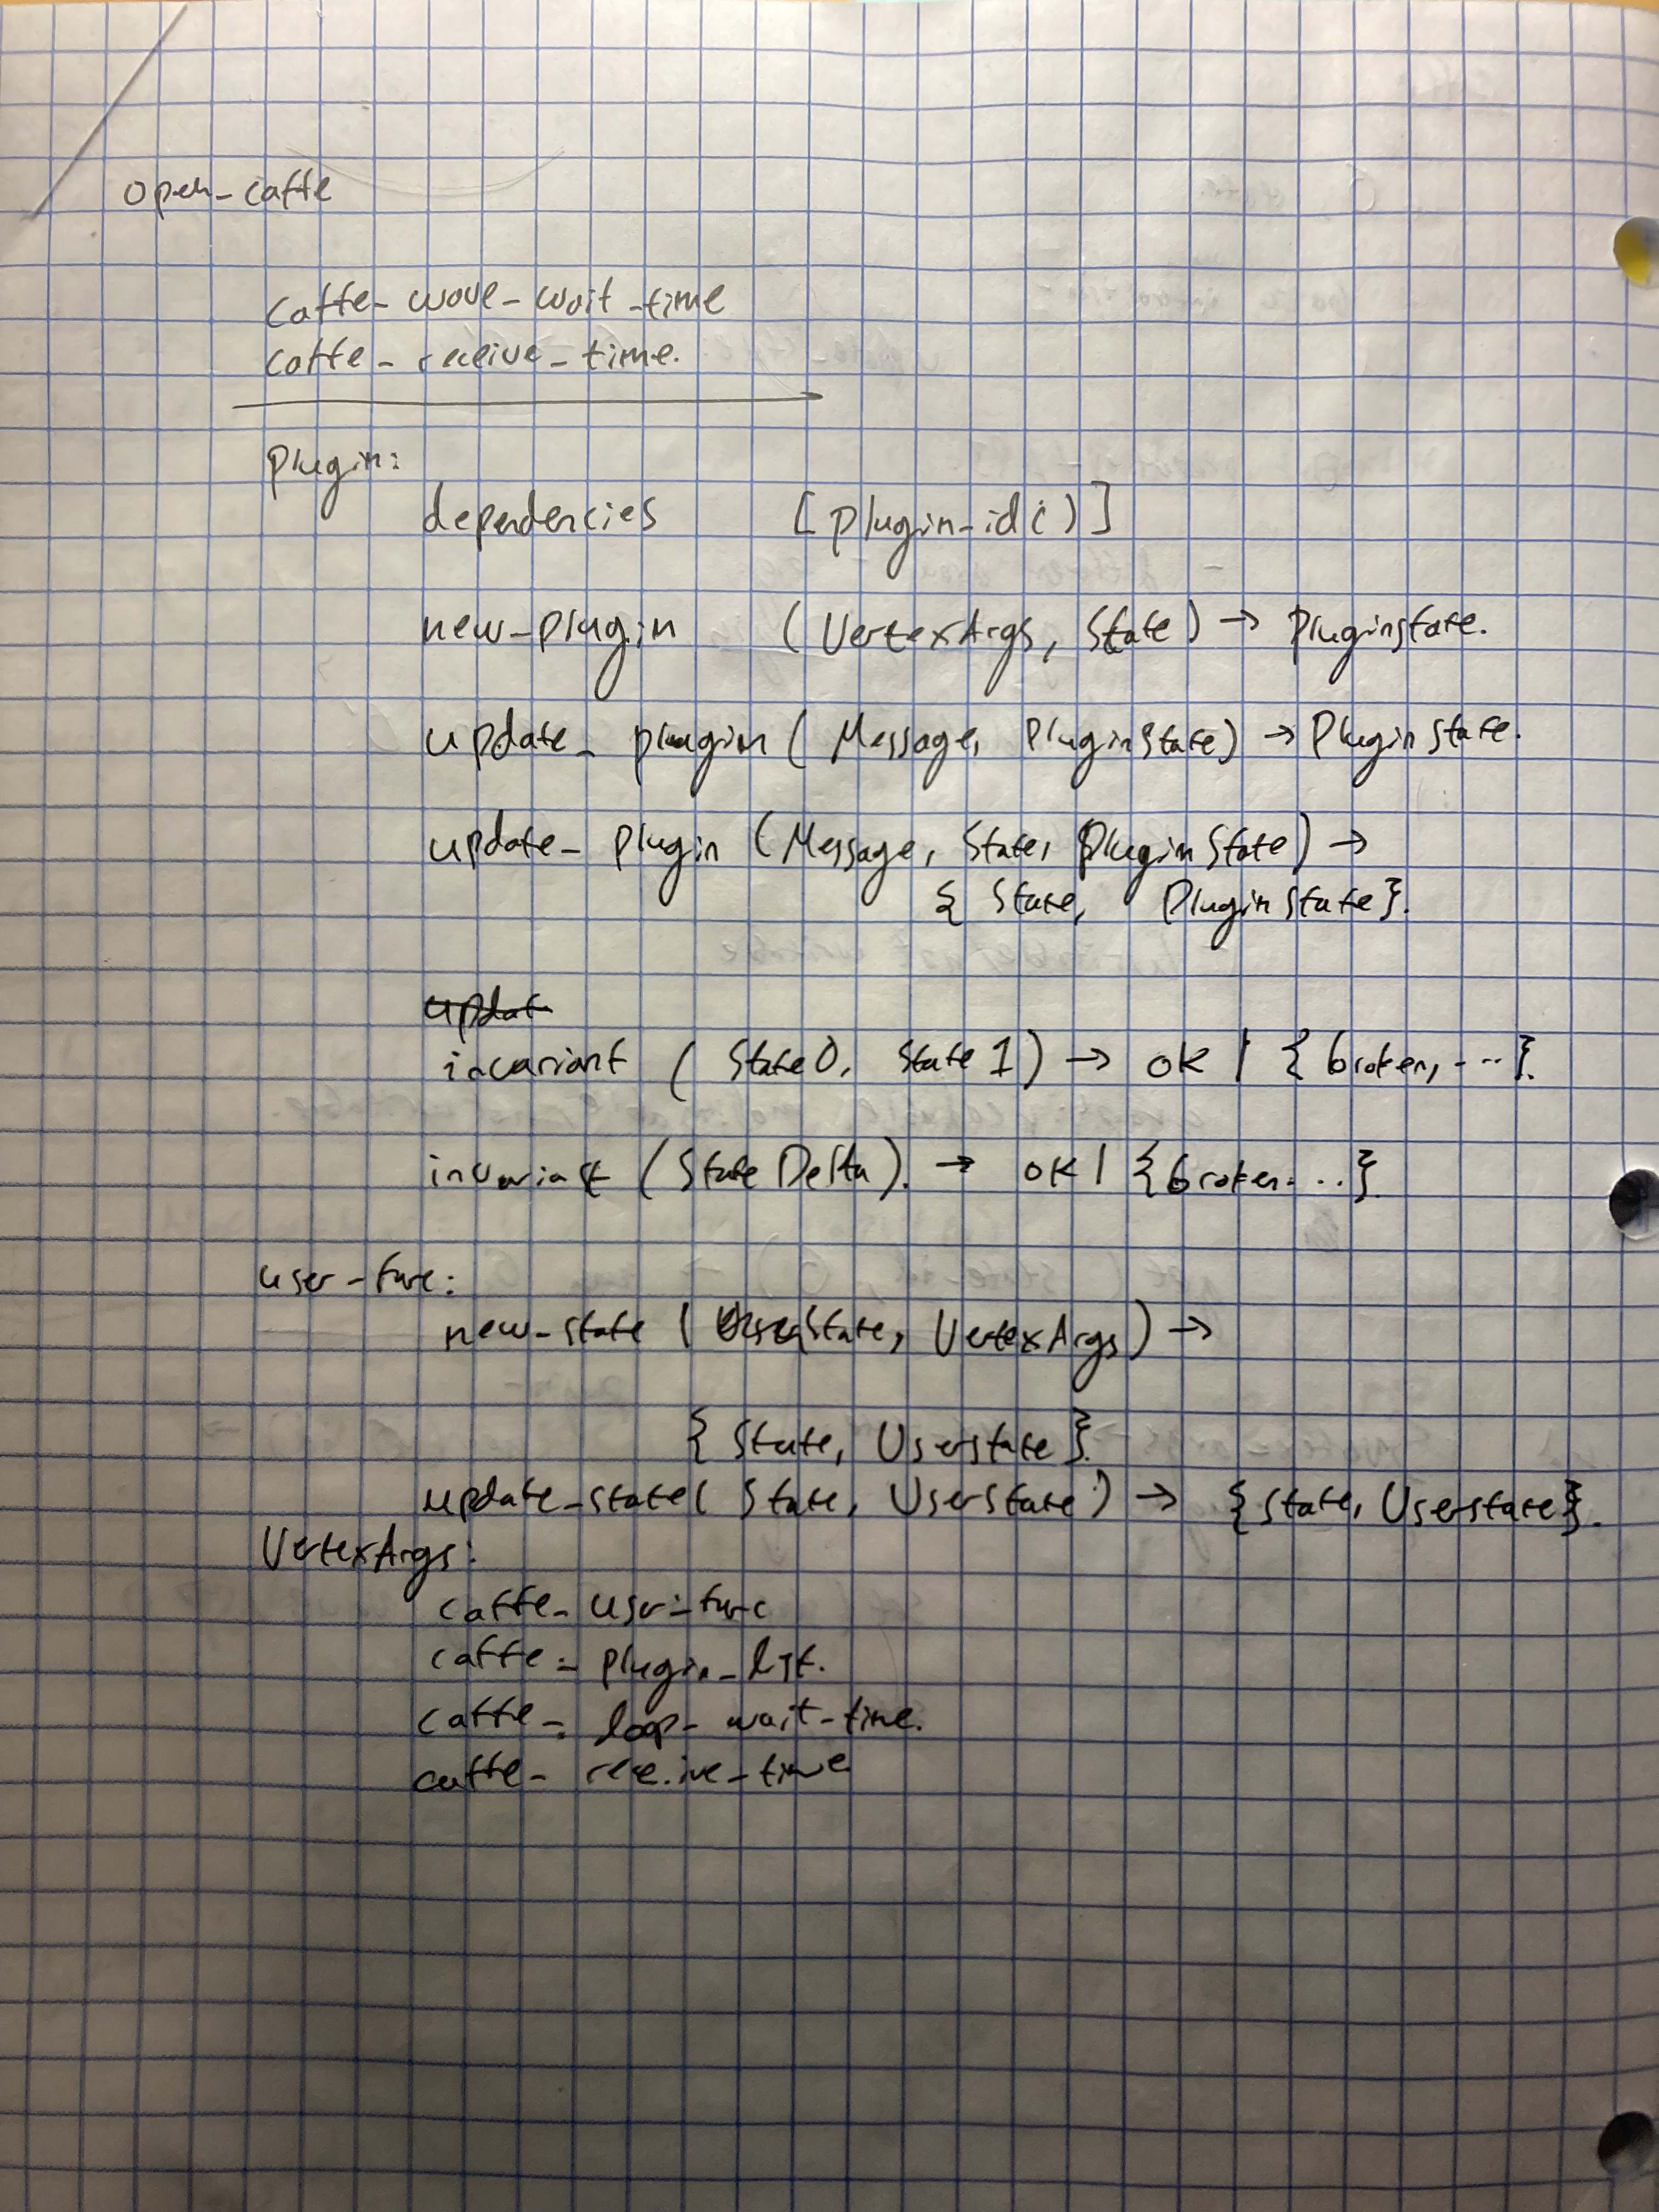 open_caffe
caffe_wave_wait_time
caffe_receive_time.
plugin:
dependencies [plugin_id()]
new_plugin (VertexArgs, State) → PluginState.
update_plugin (Message, PluginState) → PluginState.
update_plugin (Message, State, PluginState) →
{ State, PluginState}.
updat
invariant (State0, State1) → ok | {broken, ...}.
invariant (StateDelta). → ok | {broken...}.
user_func:
new_state (UserState, VertexArgs) →
{ State, UserState}.
update_state( State, UserState) → {State, UserState}.
VertexArgs:
caffe_user_func
caffe_plugin_list.
caffe_loop_wait_time.
caffe_receive_time